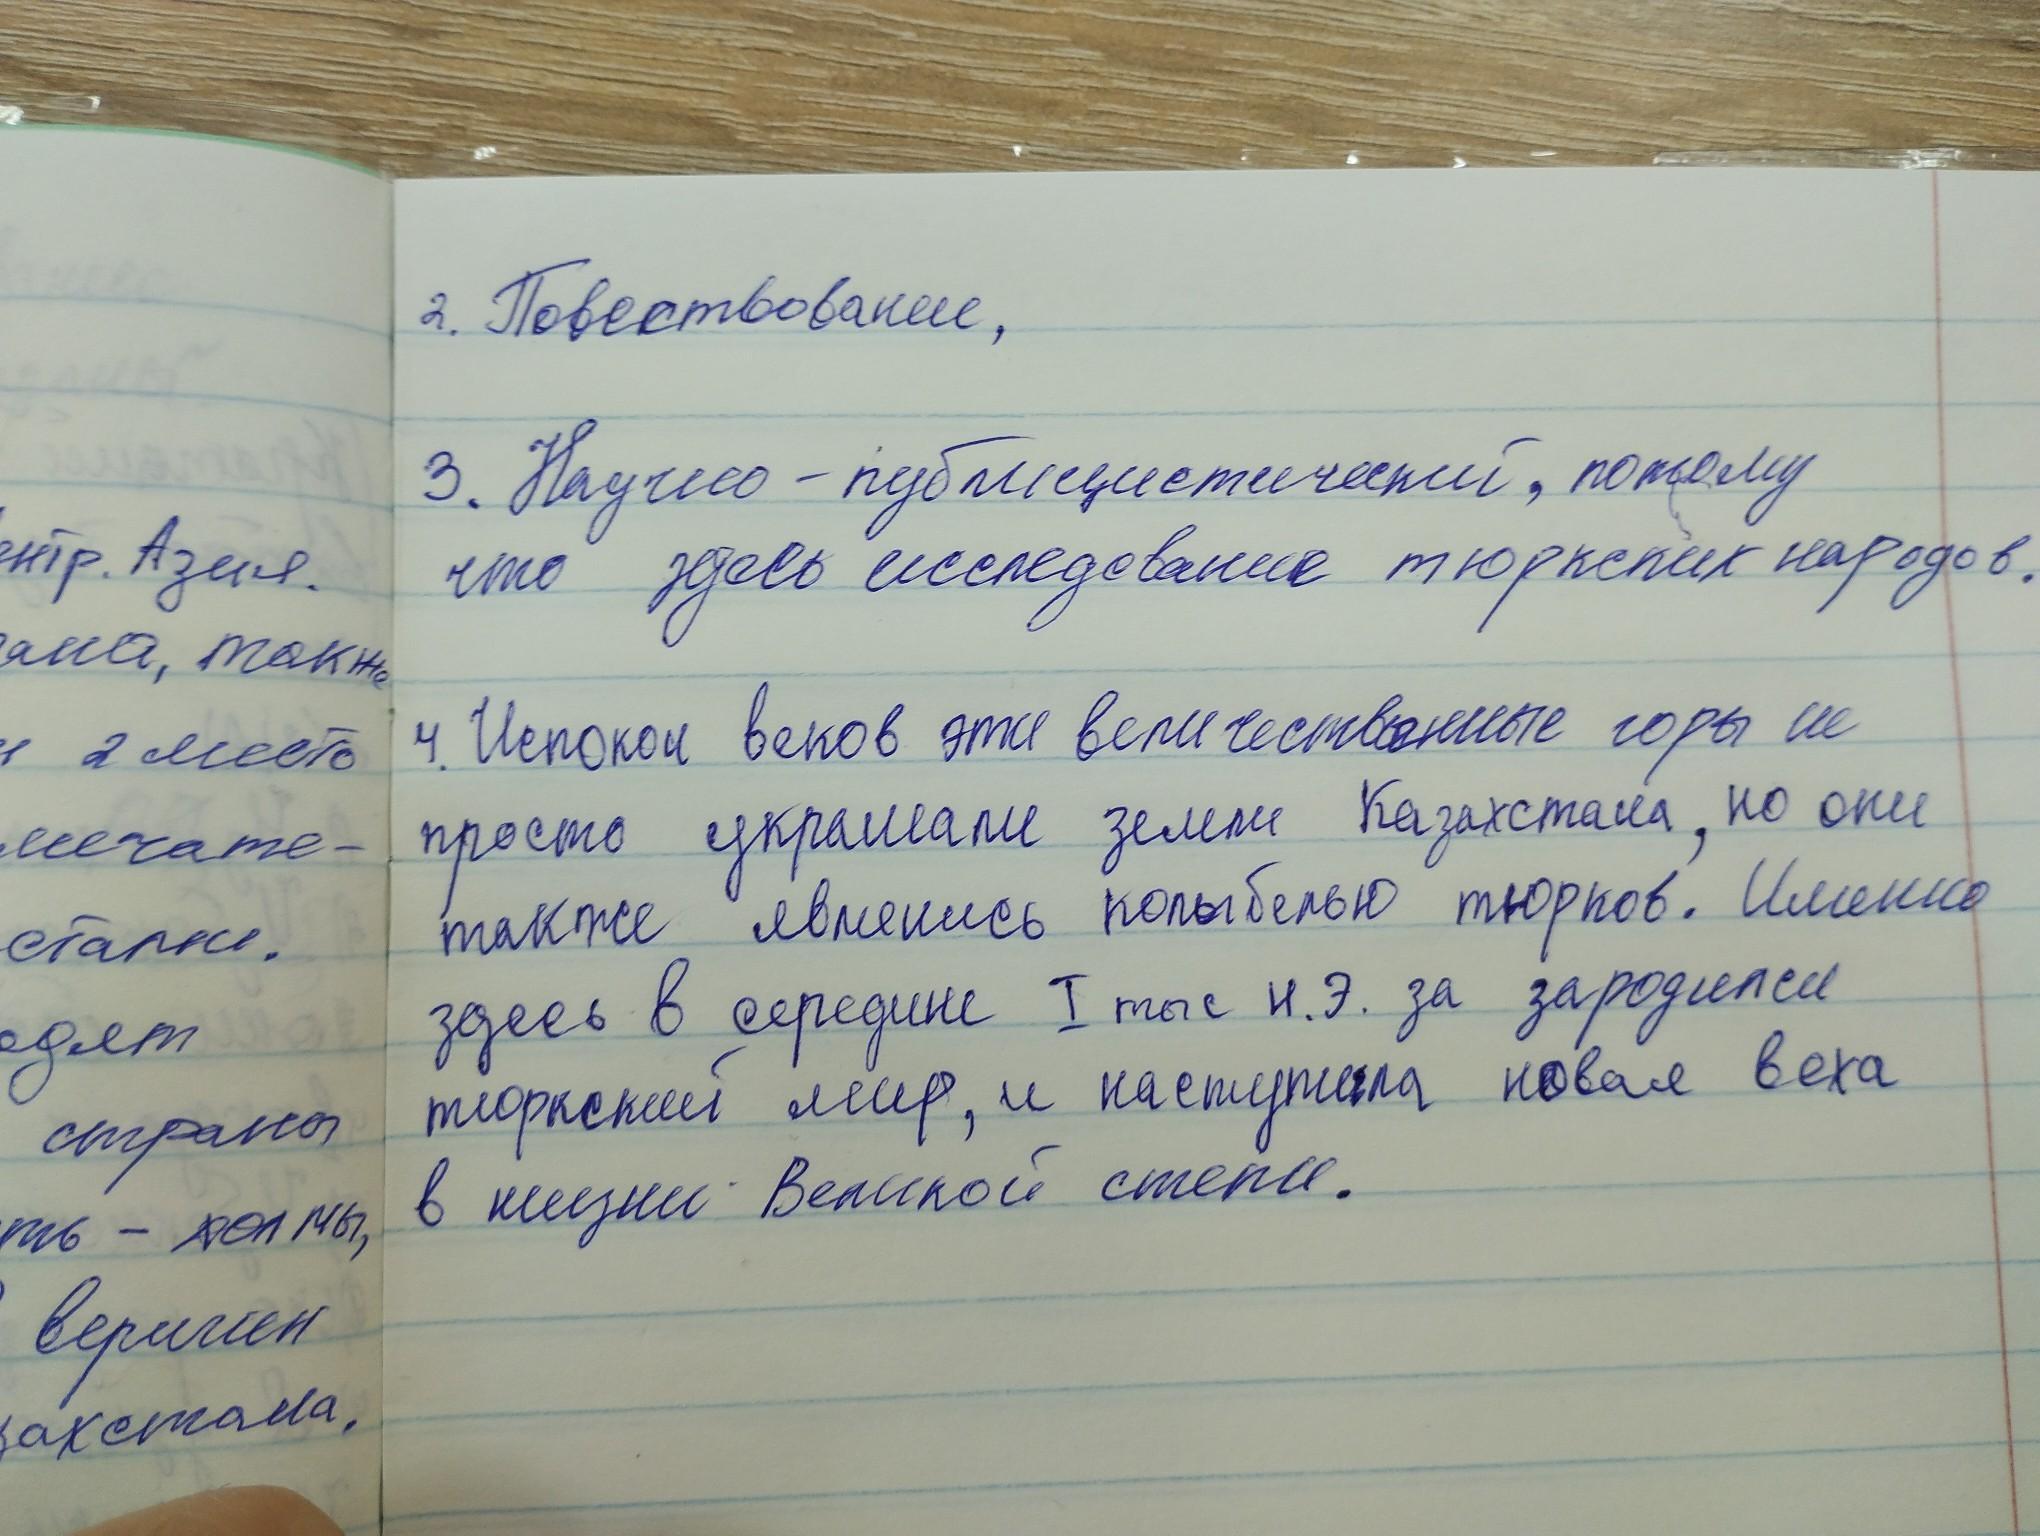 2. Повествование,
3. Научно-публицистический, потому
что здесь исследование тюркских народов.
4. Испокон веков эти величественные горы не
просто украшали земли Казахстана, но они
также являлись колыбелью тюрков. Именно
здесь в середине I тыс н.э. за зародился
тюркский мир, и наступила новая веха
в жизни Великой степи.
Азия.
также
2 место
стали.
страны
- холмы,
вершин